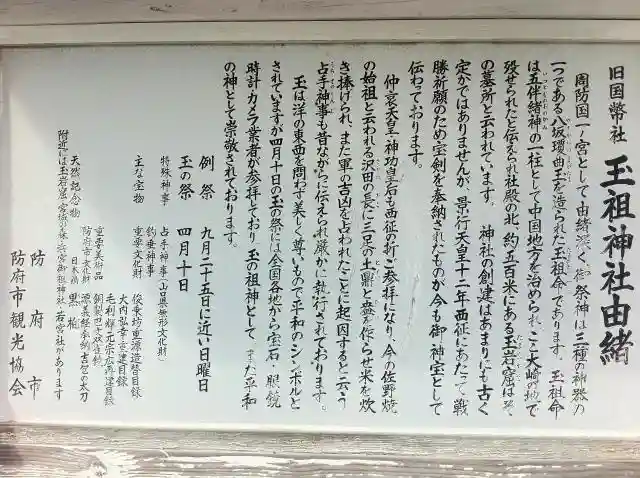 旧国幣社
玉祖神社由緒
周防国一ノ宮として由緒深く御祭神は三種の神器の
一つである八坂瓊曲玉を造られた玉祖命であります。玉祖命
は五伴緒神の一柱として中国地方を治められここ大崎の地で
歿せられたと伝えられ社殿の北、約五百米にある玉岩窟はそ
の墓所と云われています。 神社の創建はあまりにも古く
定かではありませんが、景行天皇十二年西征にあたって戦
勝祈願のため宝剣を奉納されたものが今も御神宝として
伝わっております。
仲哀天皇・神功皇后も西征の折ご参拝になり、今の佐野焼
の始祖と云われる沢田の長に三足の土鼎と盤を作らせ米を炊
き捧げられ、また軍の吉凶を占われたことに起因すると云う
占手神事も昔ながらに伝えられ厳かに執行されております。
玉は洋の東西を問わず美しく尊いもので平和のシンボルと
されていますが四月十日の玉の祭には全国各地から宝石・眼鏡
時計カメラ業者が参拝しており、玉の祖神として、また平和
の神として崇敬されております。
例祭 九月二十五日に近い日曜日
玉の祭 四月十日
特殊神事 占手神事(山口県無形文化財)
釣垂神事
主な宝物 重要文化財 俊乗坊重源造替目録
大内弘幸重建目録
毛利輝元宗広再建目録
重要美術品
防府市文化財 源義経奉納吉包の太刀
天然記念物 日本鶏 黒柏
附近には玉岩窟、宮城の森、浜宮御祖神社、若宮社があります
防府市
防府市観光協会